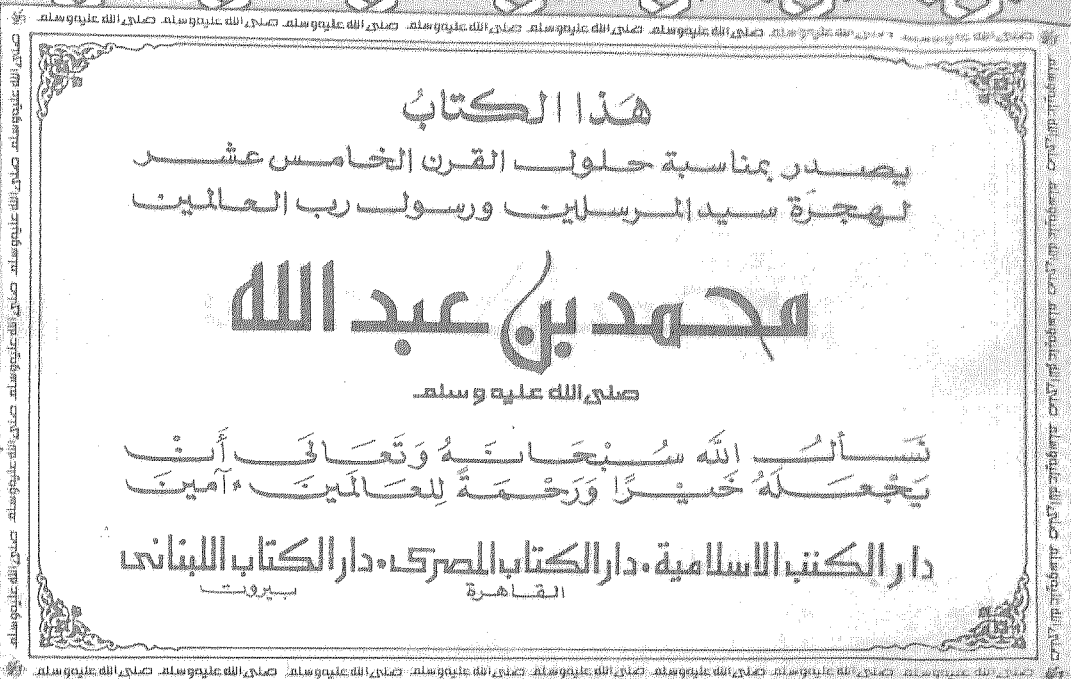 صلى الله عليه وسلم صلى الله عليه وسلم صلى الله عليه وسلم صلى الله عليه وسلم صلى الله عليه وسلم صلى الله عليه وسلم صلى الله عليه وسلم
هَذا الكتابُ
يصدر بمناسبة حلول القرن الخامس عشر
لهجرَة سيد المرسلين ورسول رب العالمين
محمد بن عبد الله
صلى الله عليه وسلم
نَسألُ اللَّه سُبْحَانَهُ وَتَعَالَى أَنْ
يَجْعَلَهُ خَيْرًا وَرَحْمَةً لِلعَالَمينَ ءآمينَ
دار الكتب الاسلامية • دار الكتاب المصرى • دار الكتاب اللبنانى
القاهرة بيروت
صلى الله عليه وسلم صلى الله عليه وسلم صلى الله عليه وسلم صلى الله عليه وسلم صلى الله عليه وسلم صلى الله عليه وسلم صلى الله عليه وسلم صلى الله عليه وسلم